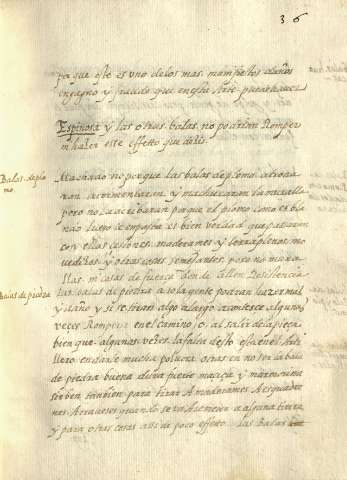 36
porque este es uno de los mas manifiestos daños
engagno y fraude que en esta Arte puede hacer
Espinosa y las otras balas no podrian Romper
ni hazer este effetto que dezis.
Balas de plo
mo.
Machado no porque las balas de plomo
atormentarian y machucaran la muralla
pero no la acribaran porque el plomo como es bla
ndo luego se empasta es bien verdad que passaran
con ellas cestones, maderames y terraplenos mo
vedizos y otras cosas semejantes, pero no mura
llas ni casas de fuerza donde hallen Resistencia
Balas de piedra
las balas de piedra a sola gente podran hazer mal
y daño y si se tiran algo a largo acontece algunas
veces Romperse en el camino, o, al salir de la pieça
bien que algunas vezes la falta desto es en el Arti
llero en darle mucha polvora otras en no ser la bala
de piedra buena de su fuerte maciça y marmorina
sirven tambien para tirar A
nes A cavaleros quando se va A a alguna tierra
y para otras cosas assi de poco effetto las Balas